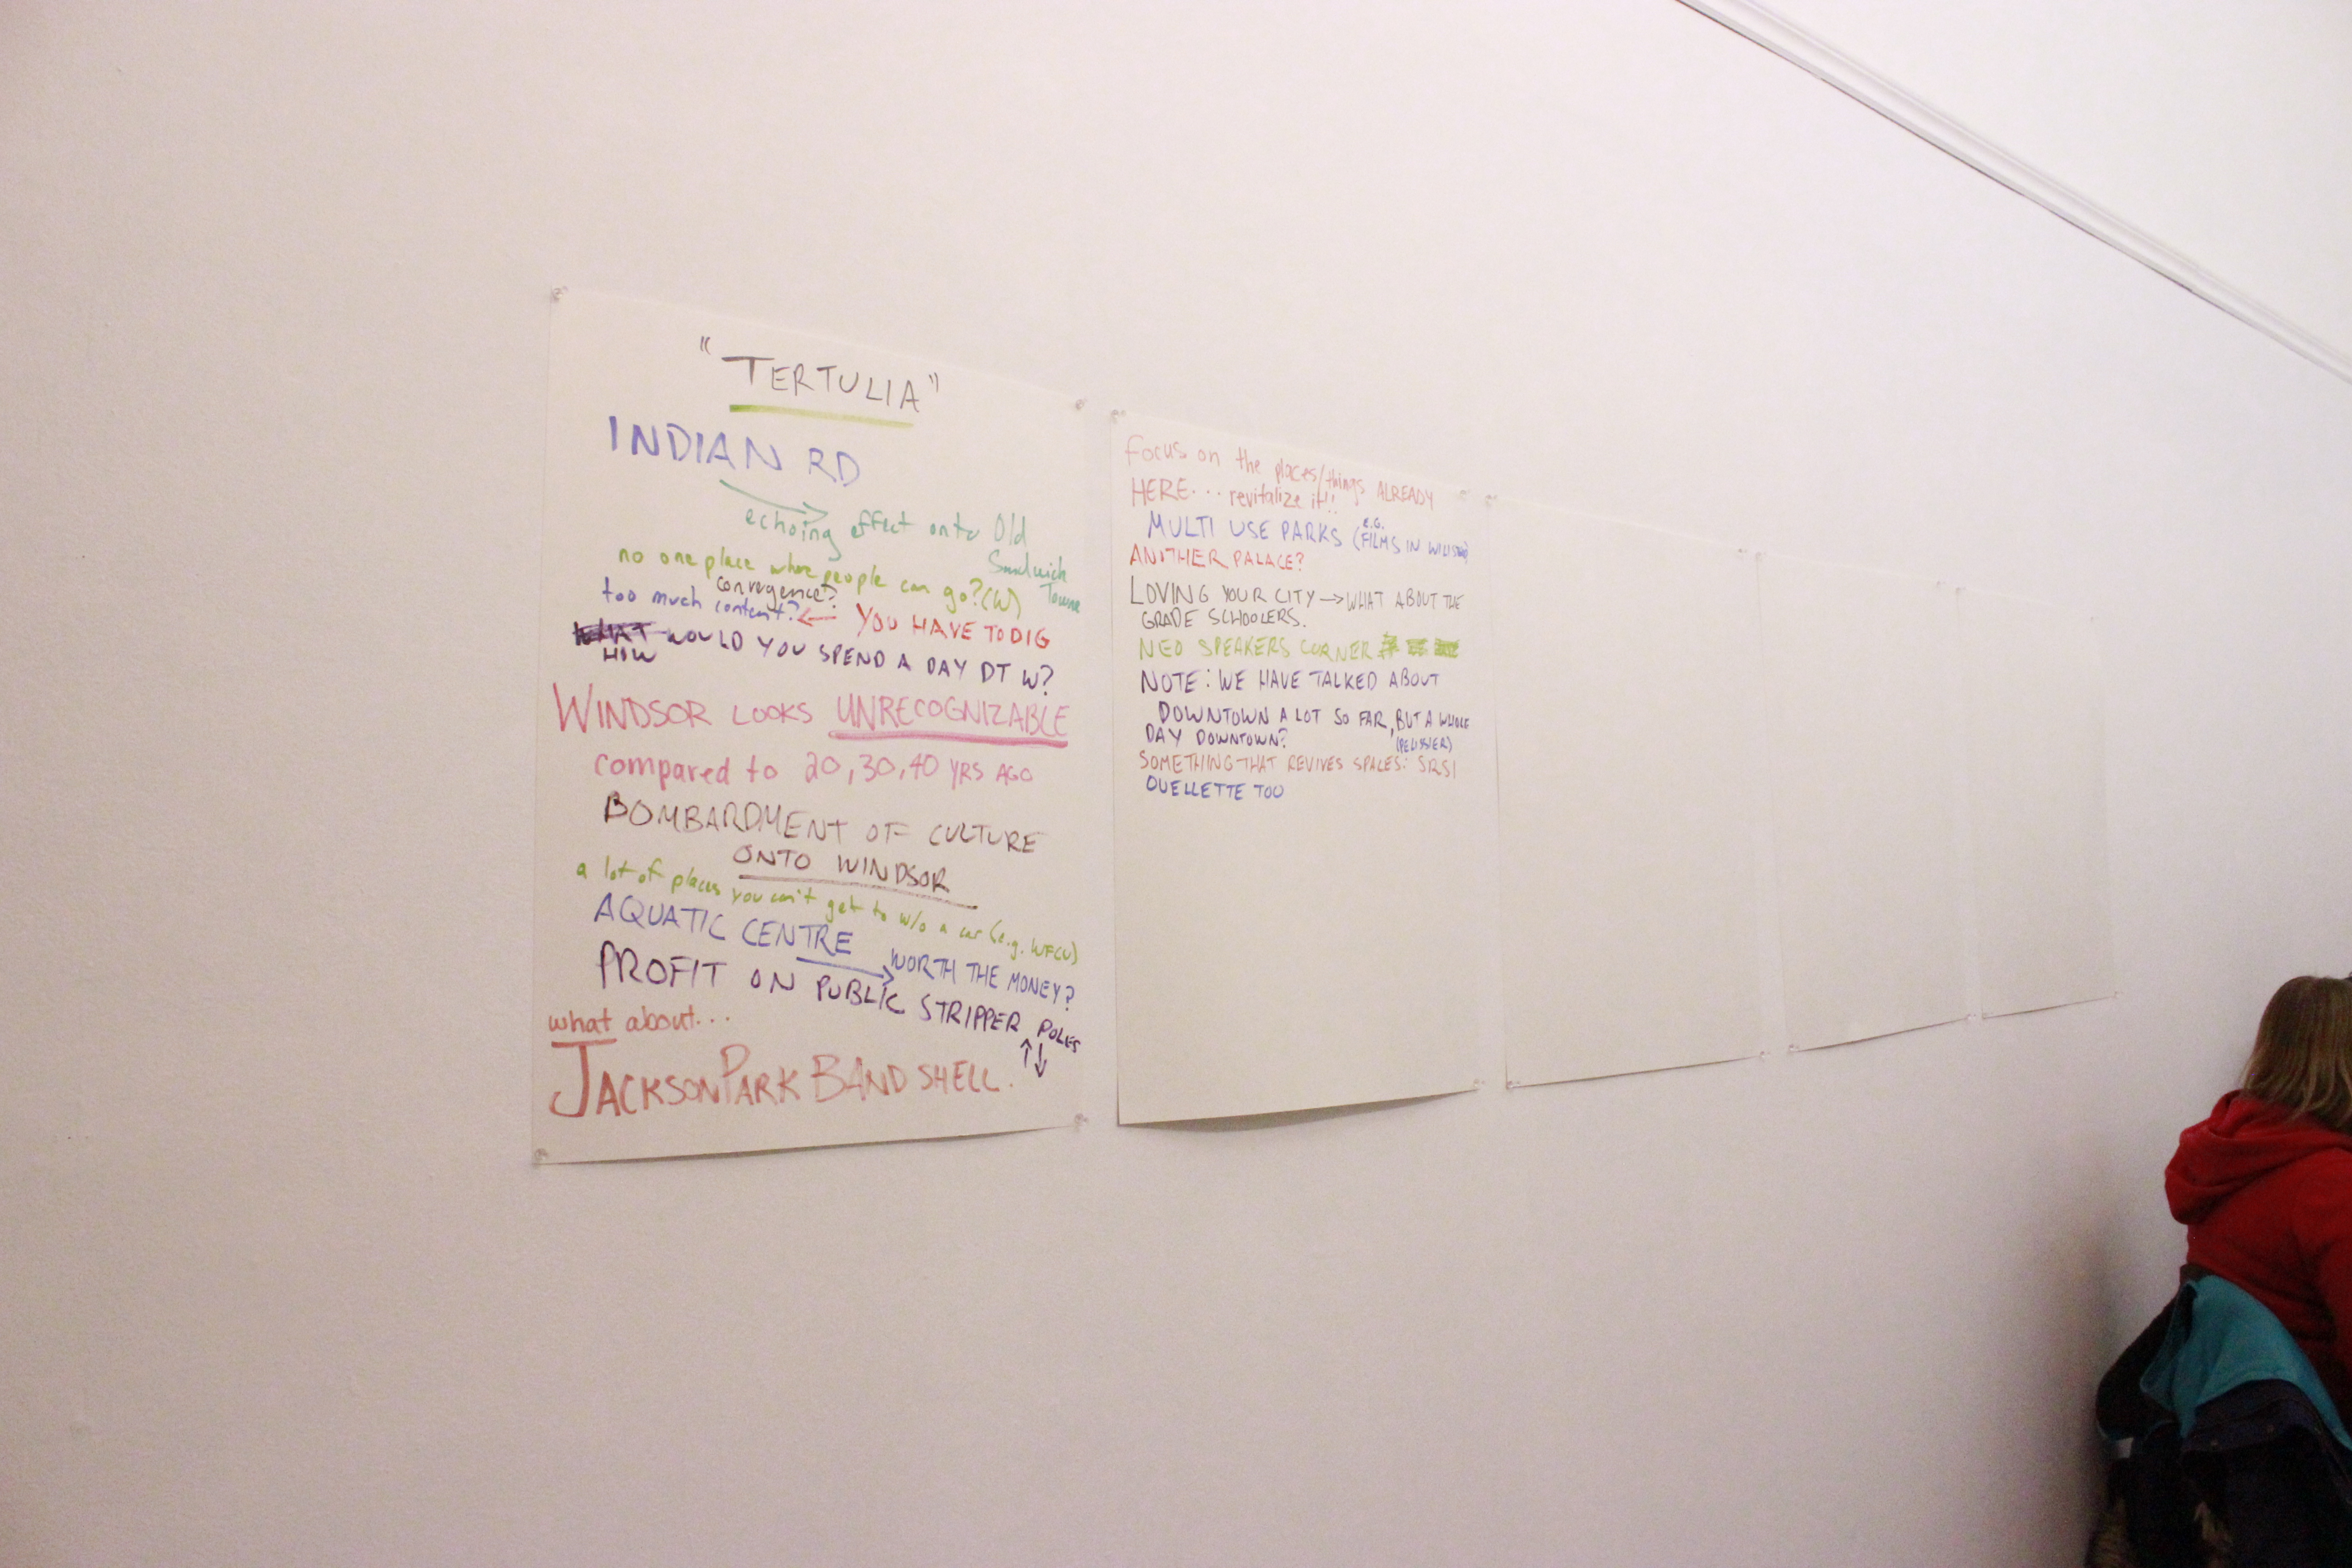 "TERTULIA"
INDIAN RD
echoing effect onto Old
Sandwich
Towne
no one place where people can go? (W)
convergence?
too much content? ← YOU HAVE TO DIG
WHAT WOULD YOU SPEND A DAY DT W?
HOW
WINDSOR LOOKS UNRECOGNIZABLE
compared to 20, 30, 40 YRS AGO
BOMBARDMENT OF CULTURE
ONTO WINDSOR
a lot of places you can't get to w/o a car (e.g. WFCU)
AQUATIC CENTRE → WORTH THE MONEY?
PROFIT ON PUBLIC STRIPPER POLES
↑↓
what about...
JACKSON PARK BAND SHELL.
Focus on the places/things ALREADY
HERE... revitalize it!!
MULTI USE PARKS (E.G. FILMS IN
ANOTHER PALACE?
LOVING YOUR CITY → WHAT ABOUT THE
GRADE SCHOOLERS.
NEO SPEAKERS CORNER
NOTE: WE HAVE TALKED ABOUT
DOWNTOWN A LOT SO FAR, BUT A WHOLE
DAY DOWNTOWN? (PELISSIER)
SOMETHING THAT REVIVES SPACES: SRSI
OUELLETTE TOO